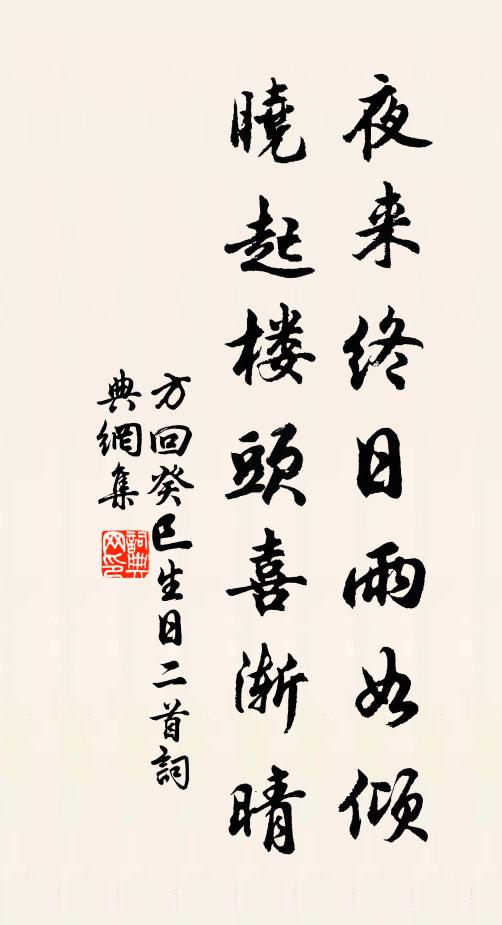 夜来终日雨如倾
晓起楼頭喜渐晴
方回癸巳生日二首詞
典網集
詞典
网印